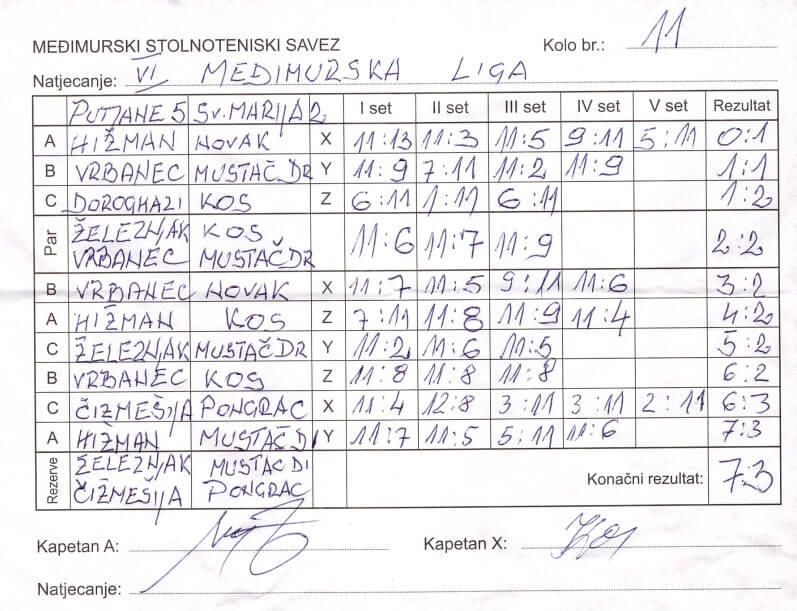 MEĐIMURSKI STOLNOTENISKI SAVEZ Kolo br.: 11
Natjecanje: VI MEĐIMURSKA LIGA
PUTJANE 5 SV. MARIJA 2 I set II set III set IV set V set Rezultat
A HIŽMAN NOVAK X 11:13 11:3 11:5 9:11 5:11 0:1
B VRBANEC MUSTAČ DR Y 11:9 7:11 11:2 11:9 1:1
C DOROGHAZI KOS Z 6:11 1:11 6:11 1:2
Par ŽELEZNJAK KOS
VRBANEC MUSTAČ DR 11:6 11:7 11:9 2:2
B VRBANEC NOVAK X 11:7 11:5 9:11 11:6 3:2
A HIŽMAN KOS Z 7:11 11:8 11:9 11:4 4:2
C ŽELEZNJAK MUSTAČ DR Y 11:2 11:6 11:5 5:2
B VRBANEC KOS Z 11:8 11:8 11:8 6:2
C ČIZMEŠIJA PONGRAC X 11:4 12:8 3:11 3:11 2:11 6:3
A HIŽMAN MUSTAČ DI Y 11:7 11:5 5:11 11:6 7:3
Rezerve ŽELEZNJAK MUSTAČ DI
ČIZMEŠIJA PONGRAC Konačni rezultat: 7:3
Kapetan A: Kapetan X: Kos
Natjecanje: